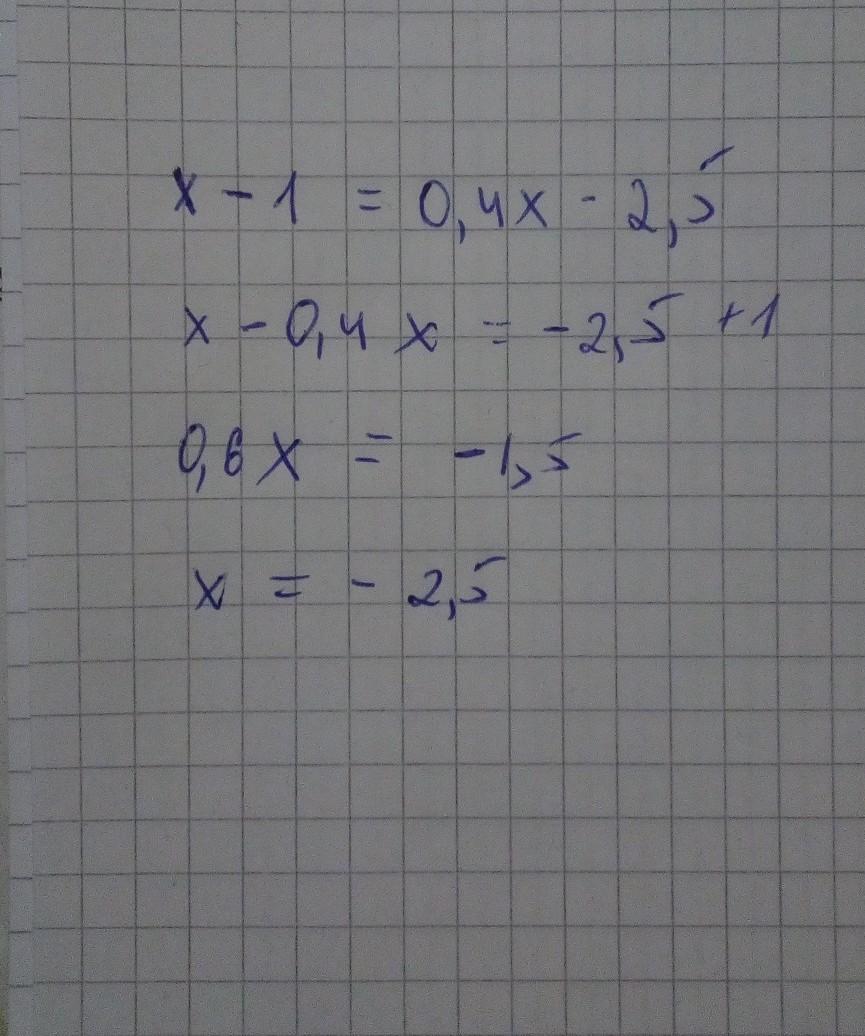 x - 1 = 0,4x - 2,5
x - 0,4x = -2,5 + 1
0,6x = -1,5
x = - 2,5